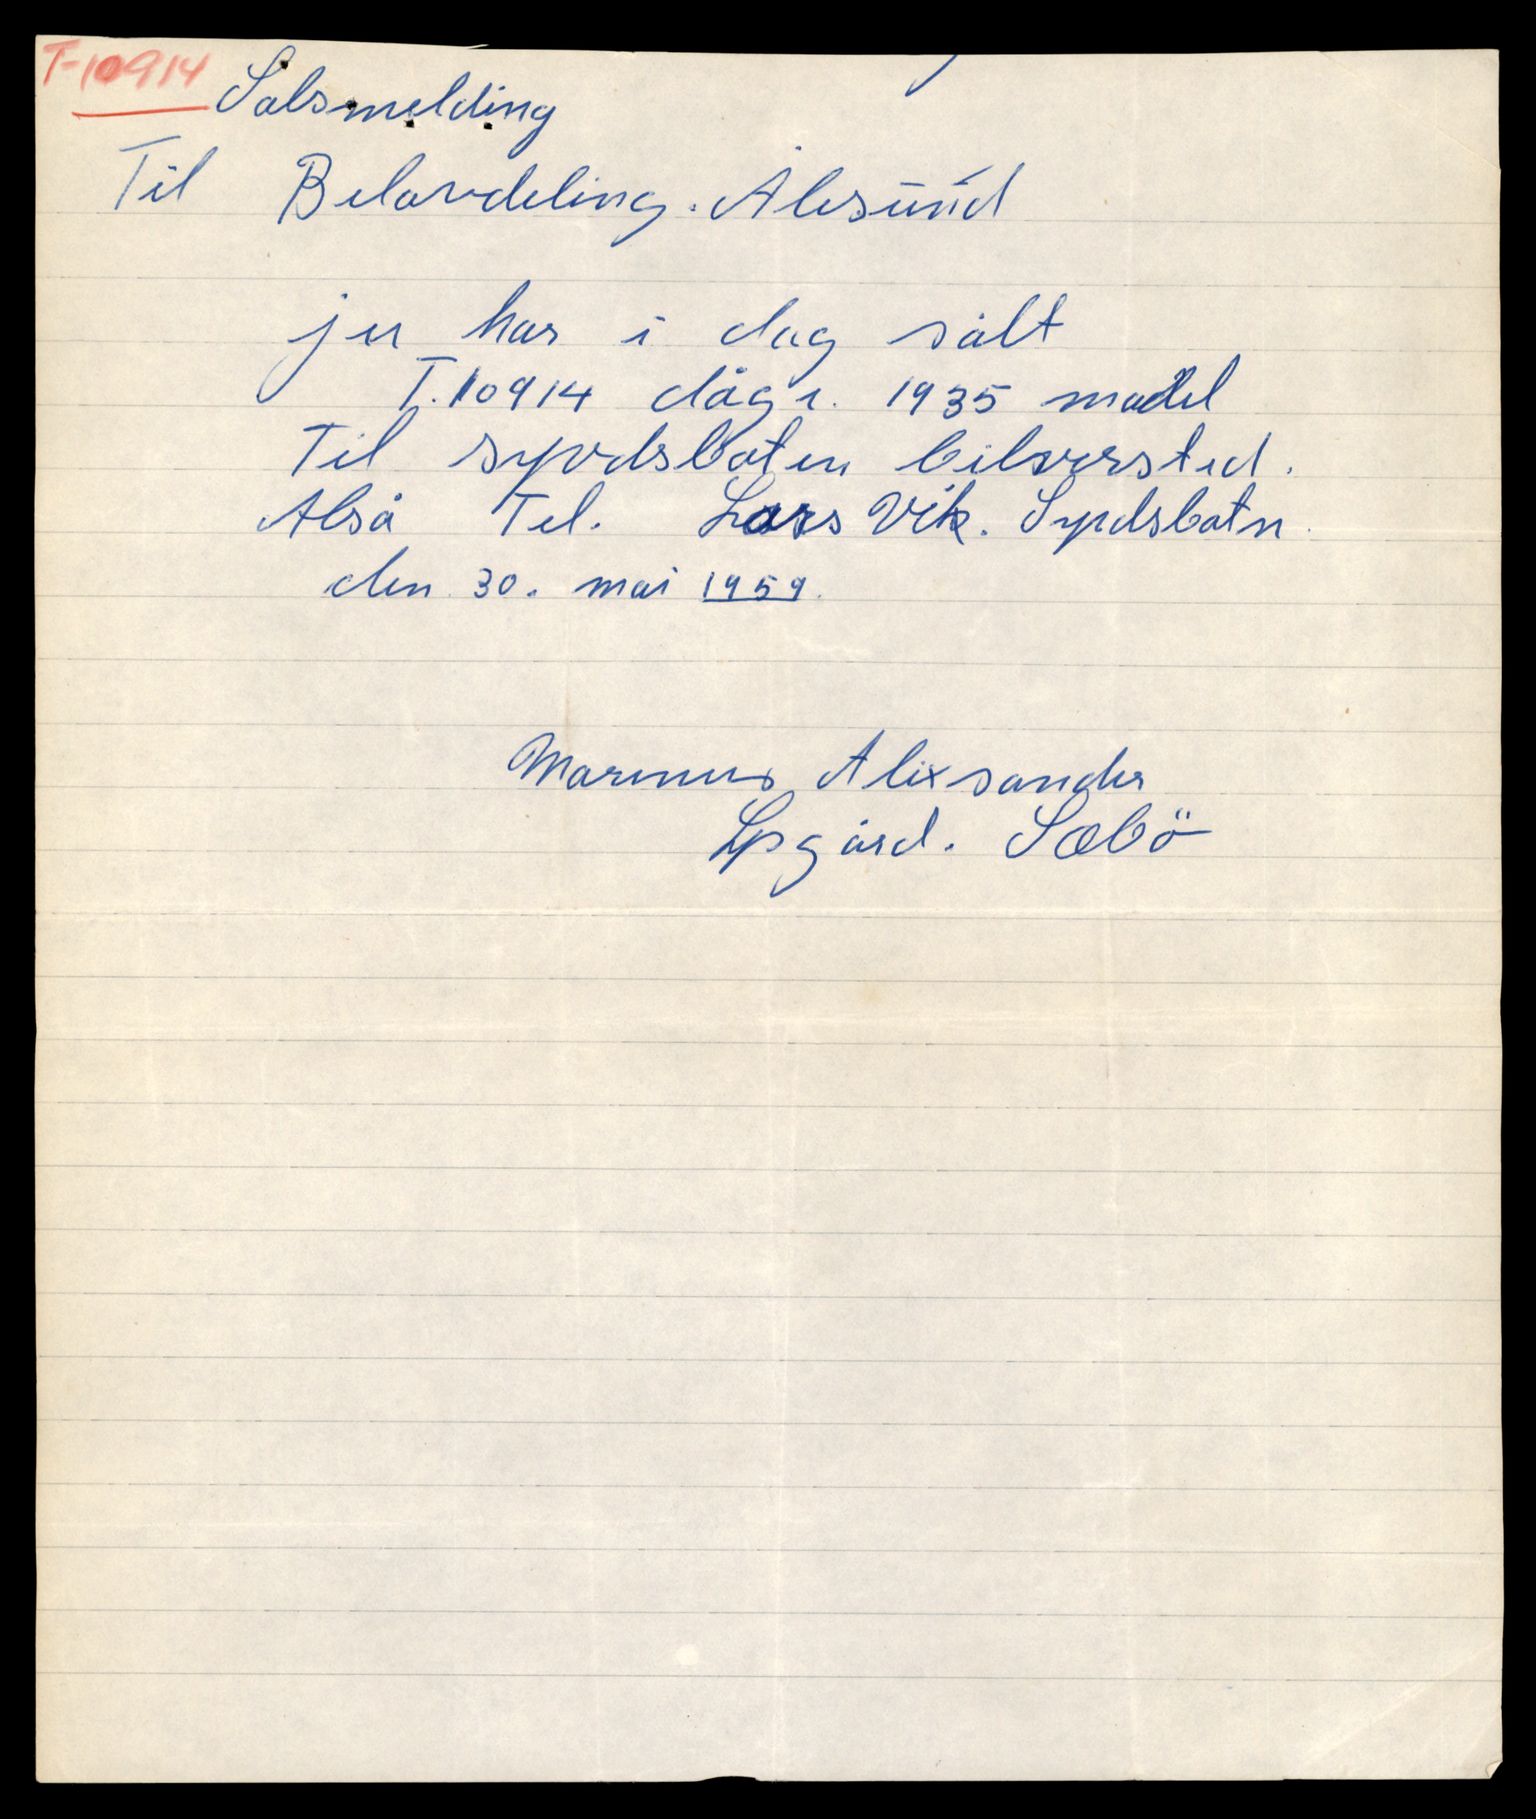 T-10914
Salsmelding
Til Bilavdeling. Ålesund
jeg har i dag sålt
T.10914 dågr. 1935 model
Til syvdsboten bilversted.
Alså Til. Lars Vik. Syvdsbotn.
den 30. mai 1959.
Marinus Alixsander
Løsgård. Sæbö